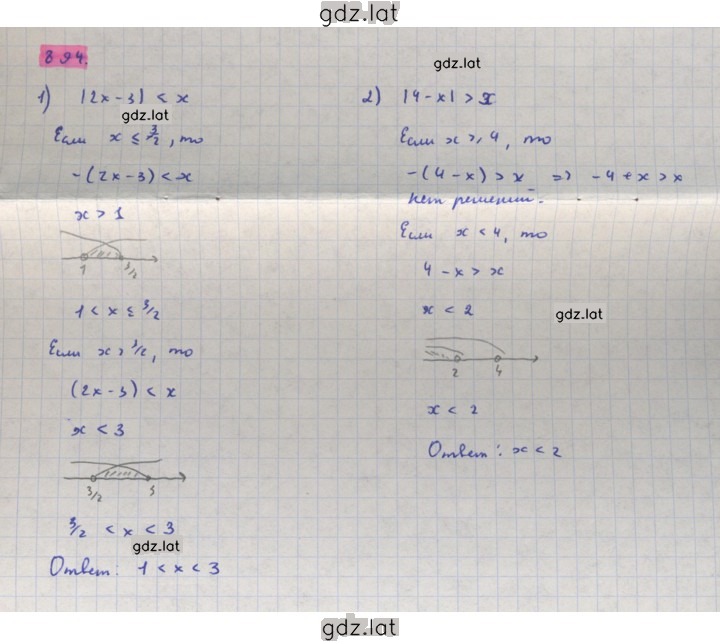 gdz.lat
894.
gdz.lat
1) |2x-3| < x
gdz.lat
Если x ≤ 3/2, то
-(2x-3) < x
x > 1
1 3/2
1 < x ≤ 3/2
Если x > 3/2, то
(2x-3) < x
x < 3
3/2 3
3/2 < x < 3
gdz.lat
Ответ: 1 < x < 3
2) |4-x| > x
Если x ≥ 4, то
-(4-x) > x => -4+x > x
нет решений.
Если x < 4, то
4-x > x
x < 2
gdz.lat
2 4
x < 2
Ответ: x < 2
gdz.lat